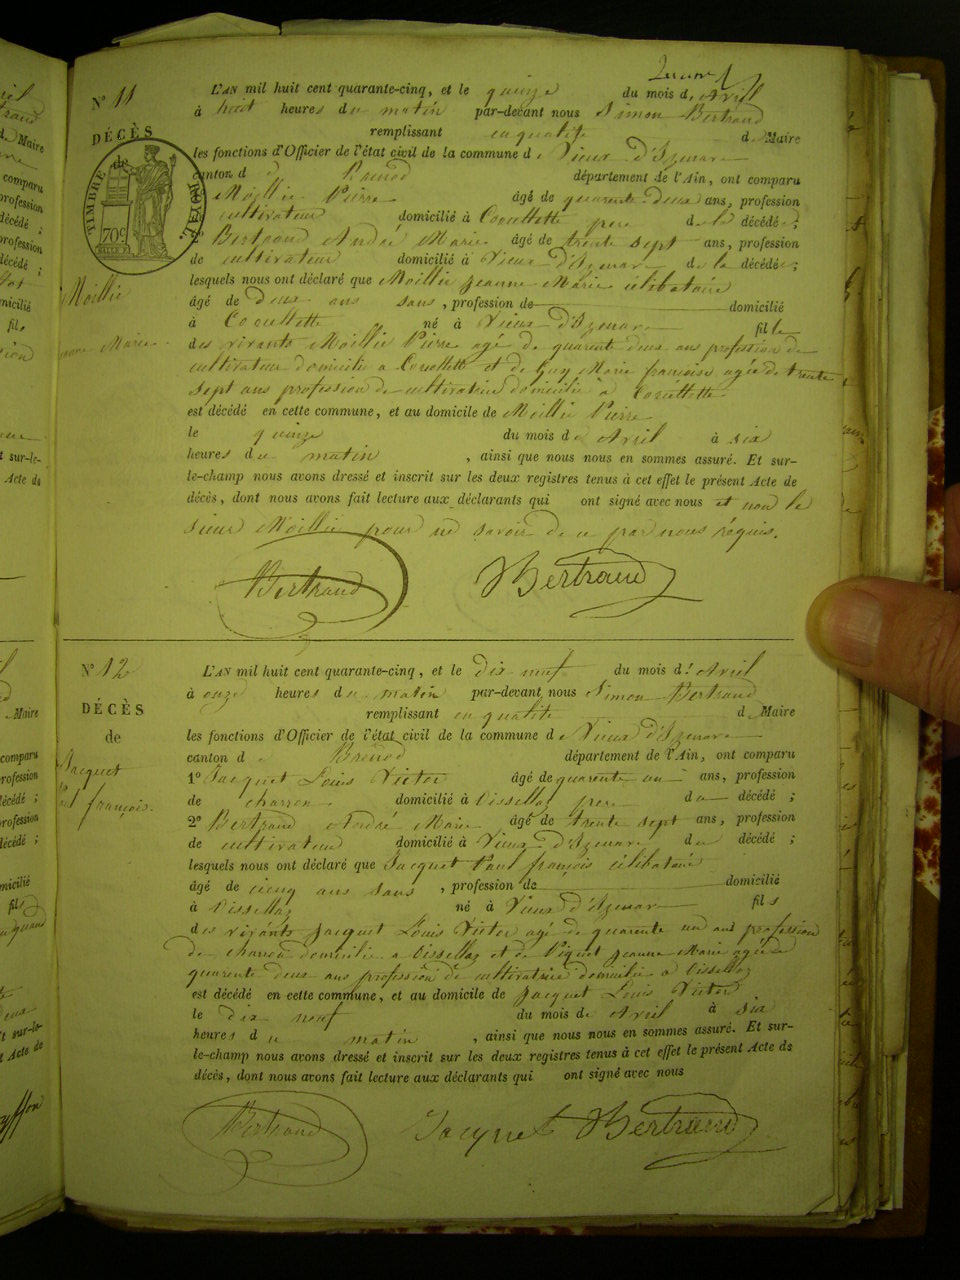 N° 11
DÉCÈS
de
TIMBRE ROYAL
70c
Moillie
Jeanne Marie
L'AN mil huit cent quarante-cinq, et le quinze du mois d'Avril
à huit heures du matin par-devant nous Simon Bertrand
remplissant en qualité de Maire
les fonctions d'Officier de l'état civil de la commune de Vieux d'Izenave
canton de Brenod département de l'Ain, ont comparu
Moillie Pierre âgé de quarente deux ans, profession
cultivateur domicilié à Corcellette pere de la décédée;
Bertrand André Marie âgé de trente sept ans, profession
de cultivateur domicilié à Vieux d'Izenave de la décédée;
lesquels nous ont déclaré que Moillie Jeanne Marie célibataire
âgé de deux ans sans, profession de domicilié
à Corcellette né à Vieux d'Izenave fille
des vivants Moillie Pierre agé de quarente deux ans profession de
cultivateur domicilié a Corcellette et de Guy Marie françoise agée de trente
sept ans profession de cultivatrice domicilié à Corcellette
est décédé en cette commune, et au domicile de Moillie Pierre
le quinze du mois de Avril à six
heures du matin, ainsi que nous nous en sommes assuré. Et sur-
le-champ nous avons dressé et inscrit sur les deux registres tenus à cet effet le présent Acte de
décès, dont nous avons fait lecture aux déclarants qui ont signé avec nous et non le
sieur Moillie pour ne savoir de ce par nous réquis.
Bertrand Bertrand
N° 12
DÉCÈS
de
Jacquet
Paul françois.
L'AN mil huit cent quarante-cinq, et le dix neuf du mois d'Avril
à onze heures du matin par-devant nous Simon Bertrand
remplissant en qualité de Maire
les fonctions d'Officier de l'état civil de la commune de Vieux d'Izenave
canton de Brenod département de l'Ain, ont comparu
1° Jacquet Louis Victor âgé de quarente un ans, profession
de charron domicilié à Oissellaz pere du décédé;
2° Bertrand André Marie âgé de trente sept ans, profession
de cultivateur domicilié à Vieux d'Izenave du décédé;
lesquels nous ont déclaré que Jacquet Paul françois célibataire
âgé de cinq ans sans, profession de domicilié
à Oissellaz né à Vieux d'Izenave fils
des vivants Jacquet Louis Victor agé de quarente un ans profession
de charron domicilié a Oissellaz et de Piquet Jeanne Marie agée de
quarente deux ans profession de cultivatrice domicilié a Oissellaz
est décédé en cette commune, et au domicile de Jacquet Louis Victor
le dix neuf du mois de Avril à six
heures du matin, ainsi que nous nous en sommes assuré. Et sur-
le-champ nous avons dressé et inscrit sur les deux registres tenus à cet effet le présent Acte de
décès, dont nous avons fait lecture aux déclarants qui ont signé avec nous
Bertrand Jacquet Bertrand